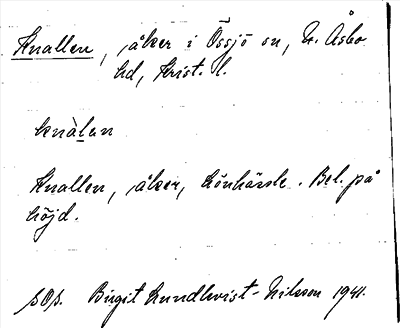 Knallen, åker i Össjö sn, N. Åsbo
hd, Krist. l.
knàlan
Knallen, åker, Lönhässle. Bel. på
höjd.
Birgit Lundkvist-Nilsson 1941.